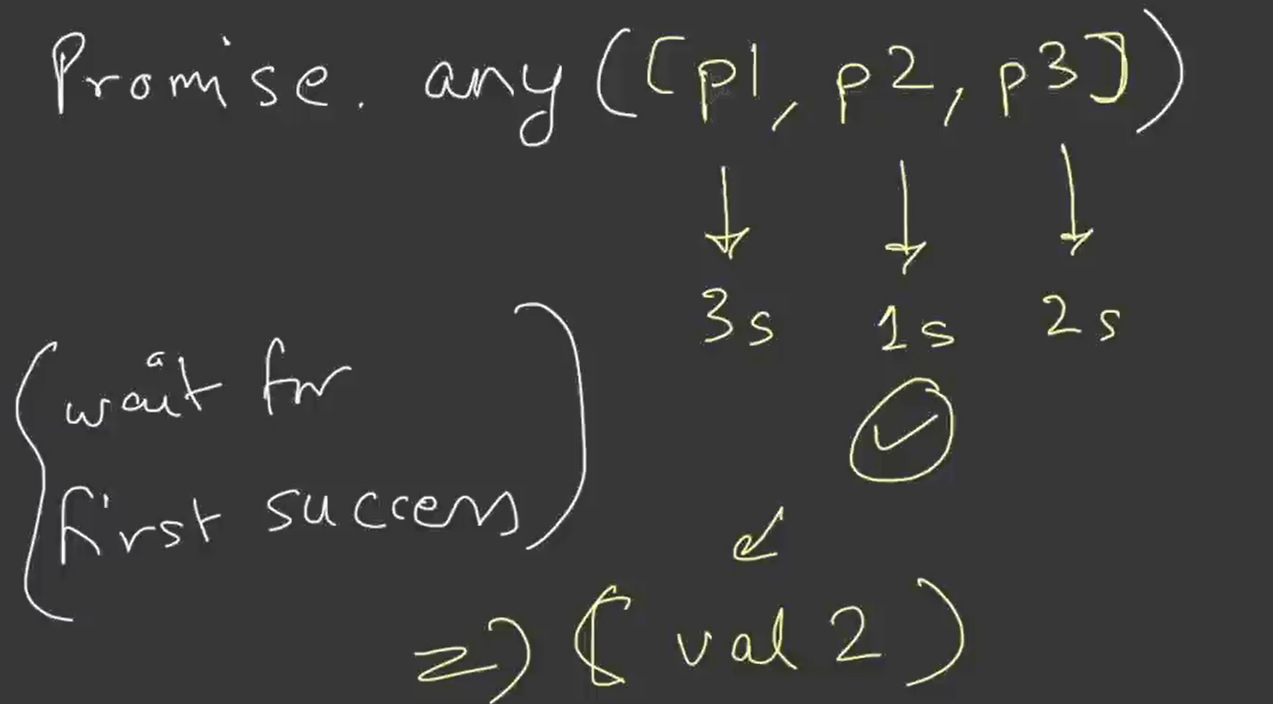 Promise. any([p1, p2, p3])
3s 1s 2s
wait for
first success
=> ( val 2 )